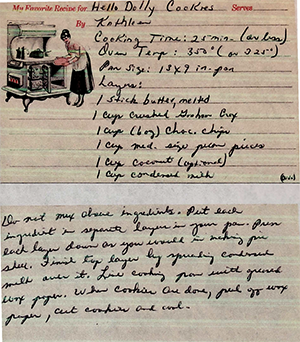 My Favorite Recipe for Hello Dolly Cookies Serves
By Kathleen
Cooking Time: 25 min. (or less)
Oven Temp: 350° (or 325°)
Pan Size: 13 x 9 in. pan
Layers:
1 stick butter, melted
1 cup crushed Graham Crax
1 cup (6 oz) Choc. chips
1 cup med. size pecan pieces
1 cup coconut (optional)
1 cup condensed milk
Do not mix above ingredients. Put each
ingredient in separate layer in your pan. Press
each layer down as you would in making pie
shell. Finish top layer by spreading condensed
milk over it. Line cooking pan with greased
wax paper. When cookies are done, peel off wax
paper, cut cookies and cool.